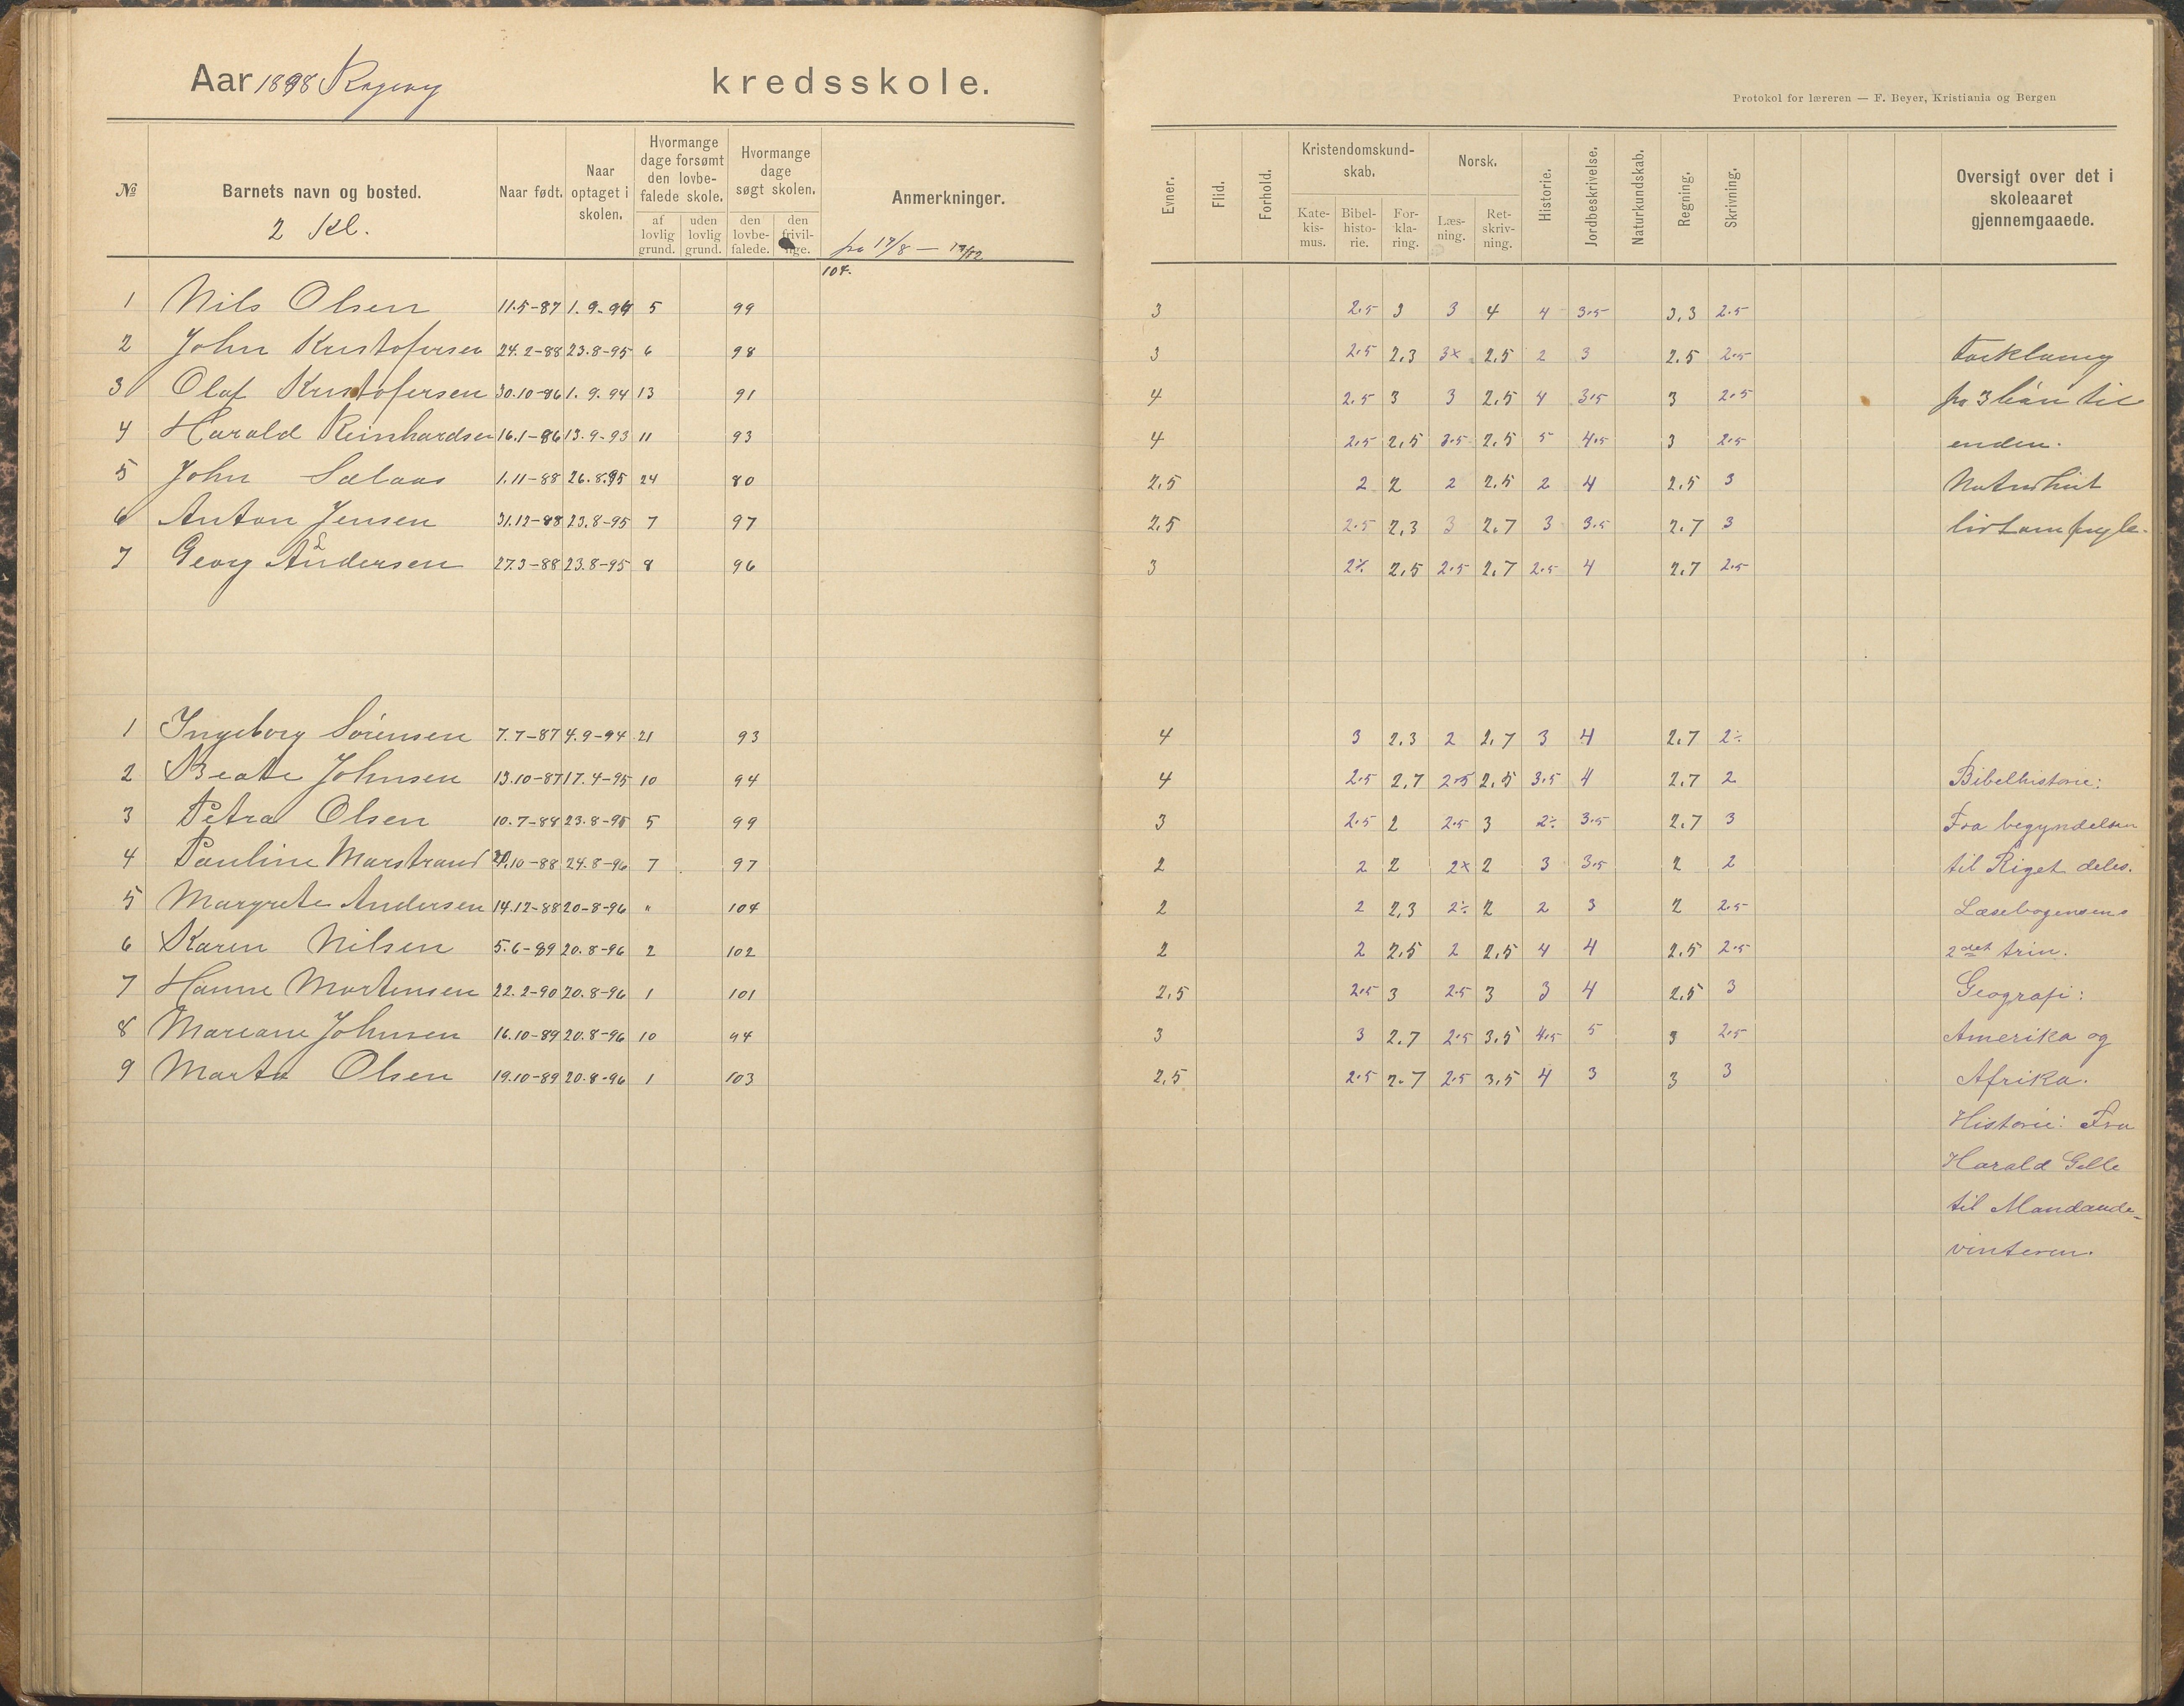 Aar 1898 kredsskole.
Protokol for læreren — F. Beyer, Kristiania og Bergen
№ Barnets navn og bosted. Naar født. Naar optaget i skolen. Hvormange dage forsømt den lovbefalede skole. af lovlig grund. uden lovlig grund. Hvormange dage søgt skolen. den lovbefalede. den frivillige. Anmerkninger. Evner. Flid. Forhold. Kristendomskundskab. Katekismus. Bibelhistorie. Forklaring. Norsk. Læsning. Retskrivning. Historie. Jordbeskrivelse. Naturkundskab. Regning. Skrivning. Oversigt over det i skoleaaret gjennemgaaede.
2 Kl. fra 17/8 — 17/12
104.
1 Nils Olsen 11.5-87 1.9-94 5 99 3 2.5 3 3 4 4 3.5 3,3 2.5
2 John Kristofersen 24.2-88 23.8-95 6 98 3 2.5 2,3 3x 2,5 2 3 2.5 2.5 Forklaring
3 Olaf Kristofersen 30.10-86 1.9.94 13 91 4 2.5 3 3 2,5 4 3.5 3 2.5 fra til
4 Harald Reinhardsen 16.1-86 13.9-93 11 93 4 2.5 2,5 3.5 2,5 5 4.5 3 2.5 enden.
5 John Salaas 1.11-88 26.8.95 24 80 2,5 2 2 2 2,5 2 4 2,5 3
6 Anton Jensen 31.12-88 23.8-95 7 97 2,5 2.5 2,3 3 2,7 3 3.5 2.7 3
7 Georg Andersen 27.3-88 23.8-95 8 96 3 2% 2,5 2.5 2,7 2.5 4 2.7 2.5
1 Ingeborg Sørensen 7.7-87 4.9-94 21 93 4 3 2,3 2 2,7 3 4 2.7 2÷
2 Beate Johnsen 13.10-87 17.4-95 10 94 4 2.5 2,7 2.5 2,5 3.5 4 2.7 2 Bibelhistorie:
3 Petra Olsen 10.7-88 23.8-95 5 99 3 2.5 2 2.5 3 2÷ 3.5 2.7 3 Fra begyndelsen
4 Pauline Marstrand 10-88 24.8-96 7 97 2 2 2 2x 2 3 3.5 2 2 til Riget deles.
5 Margrete Andersen 14.12-88 20-8-96 " 104 2 2 2,3 2÷ 2 2 3 2 2.5 Læsebogensens
6 Karen Nilsen 5.6-89 20.8-96 2 102 2 2 2,5 2 2,5 4 4 2.5 2.5 2det trin.
7 Hanne Mortensen 22.2-90 20.8-96 1 101 2,5 2.5 3 2.5 3 3 4 2,5 3 Geografi:
8 Mariane Johnsen 16.10-89 20.8-96 10 94 3 3 2.7 2.5 3.5 4.5 5 3 2.5 Amerika og
9 Marta Olsen 19.10-89 20.8-96 1 103 2,5 2.5 2.7 2.5 3,5 4 3 3 3 Afrika.
Historie: Fra
Harald Gille
til Mandaude-
vinteren.